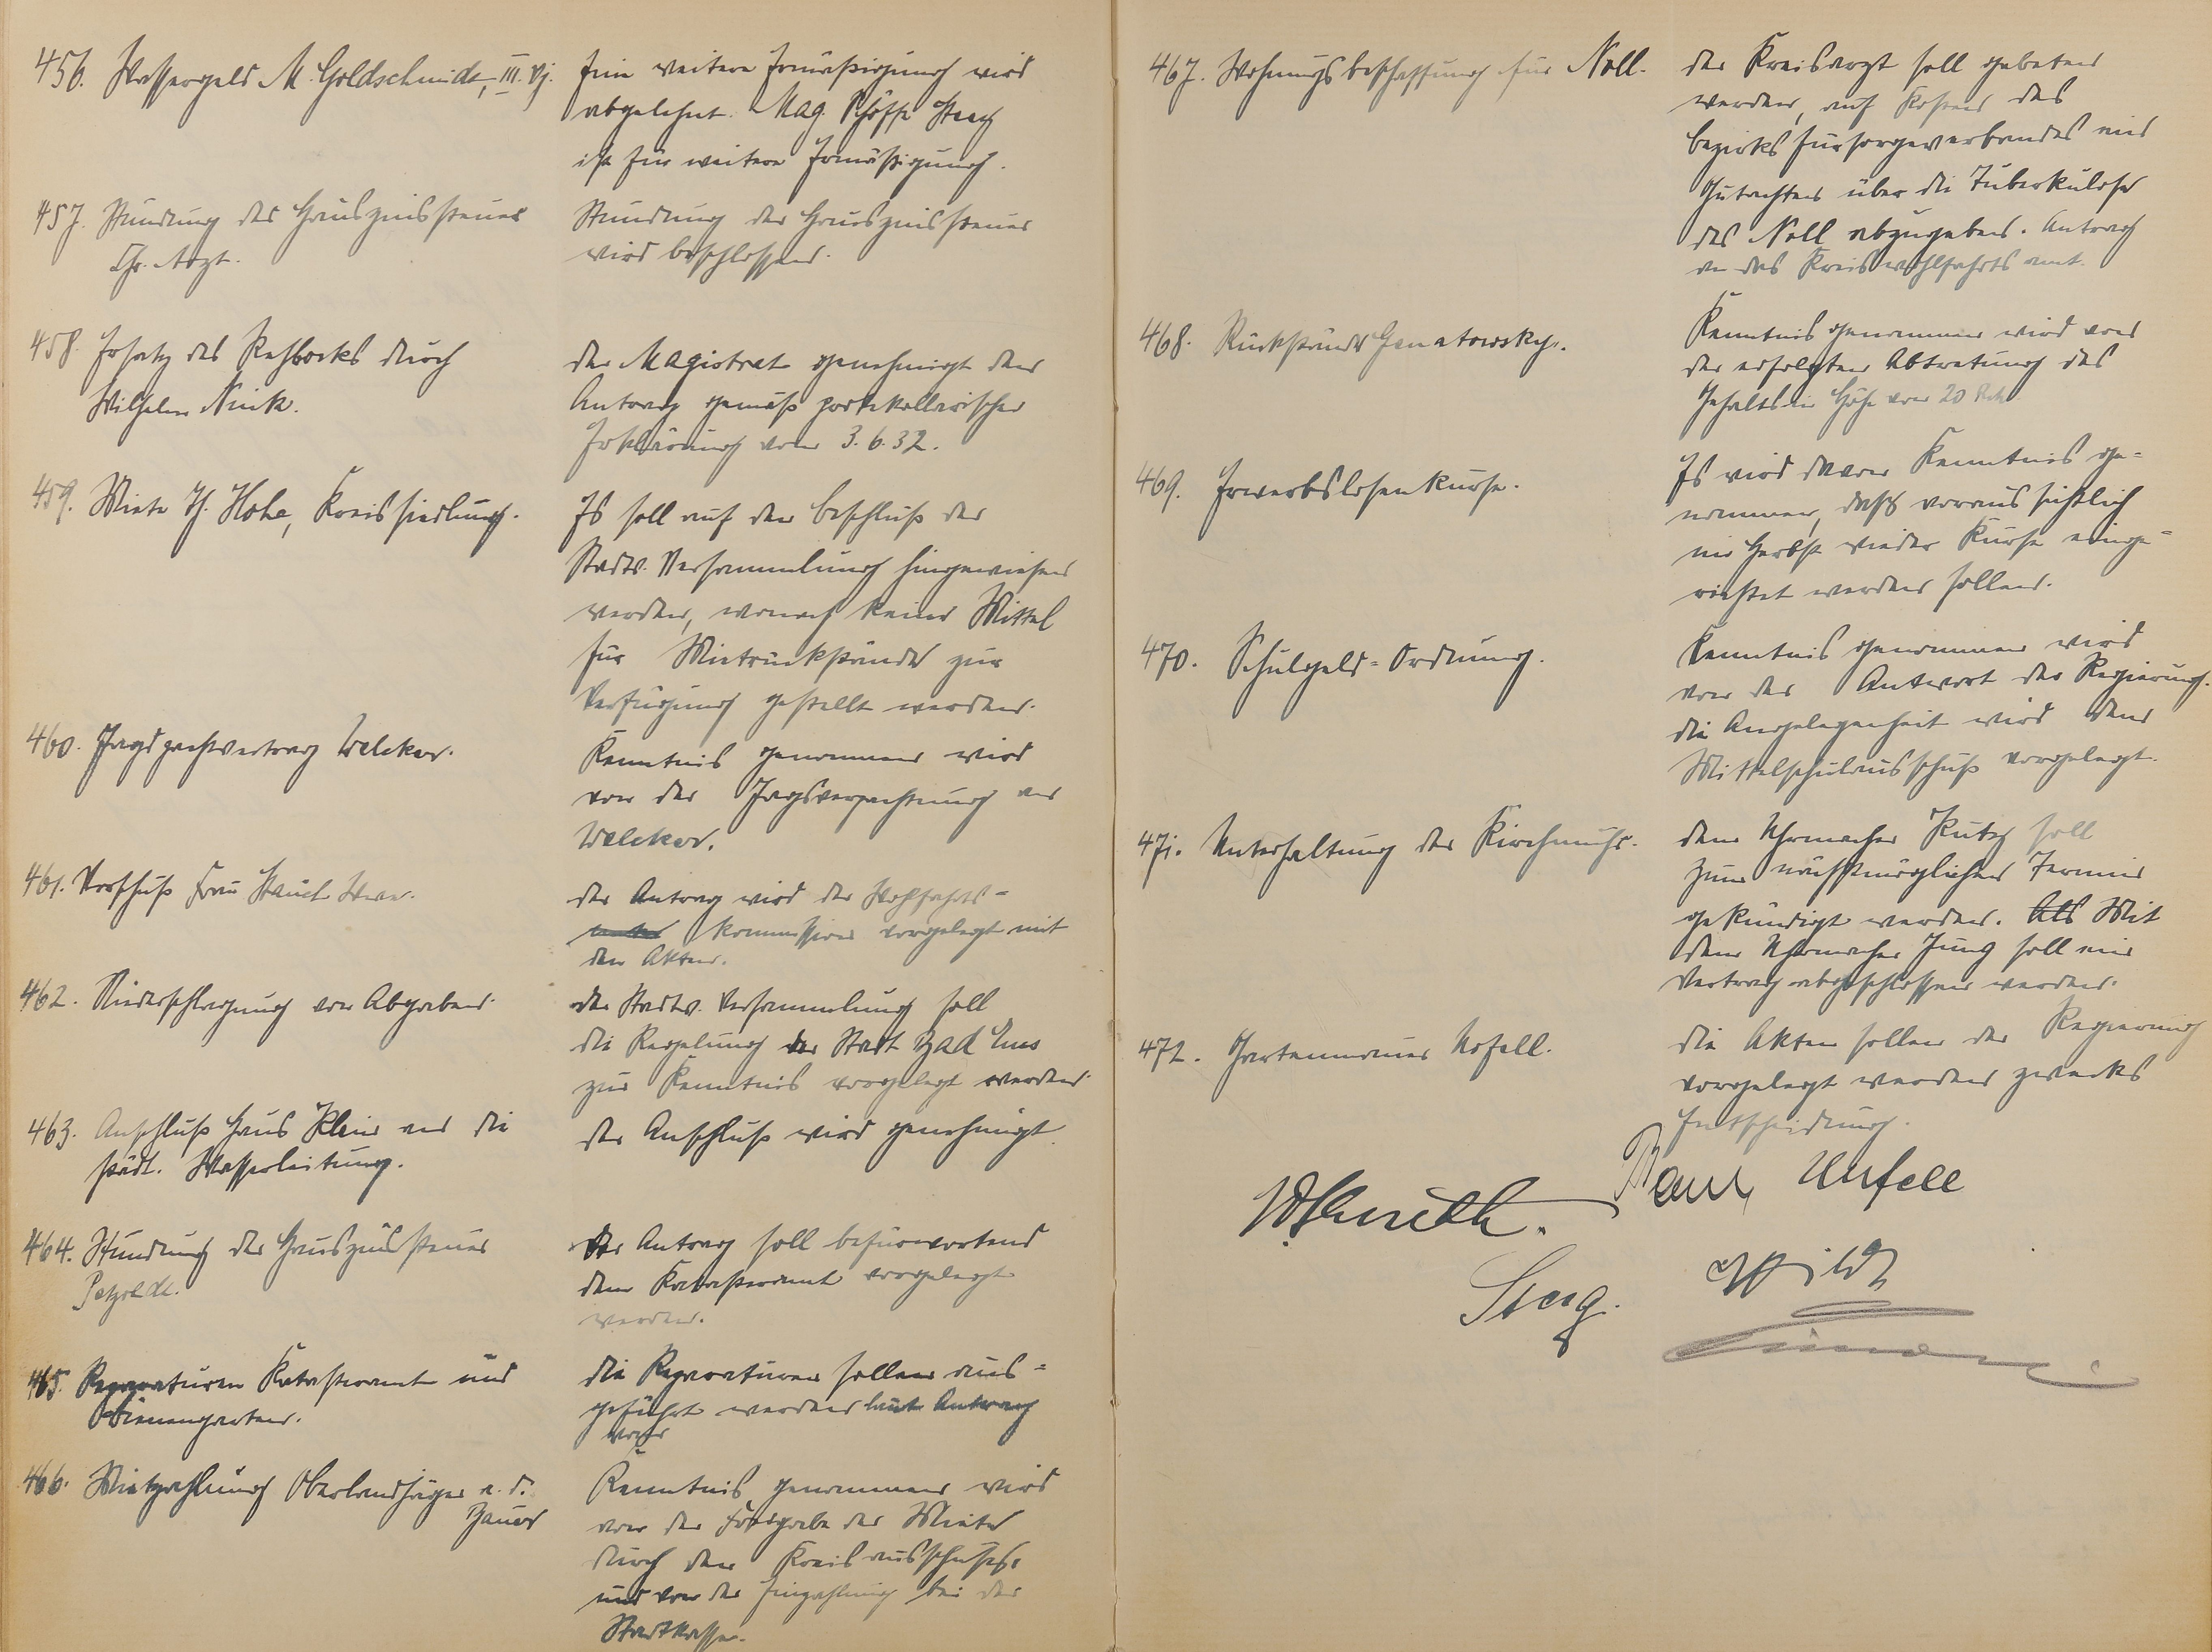 456. Wassergeld M. Goldschmidt, III. Vj.
Eine weitere Ermäßigung wird
abgelehnt. Mag. Schöffe Steeg
ist für weitere Ermäßigung.
457. Stundung der Hauszinssteuer
Chr. Arzt.
Stundung der Hauszinssteuer
wird beschlossen.
458. Ersatz des Rehbocks durch
Wilhelm Nink.
der Magistrat genehmigt den
Antrag gemäß protokollarischer
Erklärung vom 3.6.32.
459. Miete Th. Hohe, Kreissiedlung.
Es soll auf den Beschluß der
Stadtv. Versammlung hingewiesen
werden, wonach keine Mittel
für Mietrückstände zur
Verfügung gestellt werden.
460. Jagdpachtvertrag Welcker.
Kenntnis genommen wird
von der Jagdverpachtung an
Welcker.
461. Vorschuß Frau
der Antrag wird der Wohlfahrts-
kommission vorgelegt mit
den Akten.
462. Niederschlagung von Abgaben.
der Stadtv. Versammlung soll
die Regelung der Stadt Bad Ems
zur Kenntnis vorgelegt werden.
463. Anschluß Haus Klein an die
städt. Wasserleitung.
der Anschluß wird genehmigt.
464. Stundung der Hauszinssteuer
Petzoldt.
der Antrag soll befürwortend
dem Katasteramt vorgelegt
werden.
465. Reparaturen Katasteramt und
Bienengarten.
die Reparaturen sollen aus-
geführt werden laut Antrag
466. Mietzahlung Oberlandjäger a. d.
Bauer
Kenntnis genommen wird
von der Freigabe der Miete
durch den Kreisausschuß,
und von der Einzahlung bei der
Stadtkasse.
467. Wohnungsbeschaffung für Noll.
der Kreisarzt soll gebeten
werden, auf Kosten des
Bezirksfürsorgeverbandes ein
Gutachten über die Tuberkulose
des Noll abzugeben. Antrag
an das Kreiswohlfahrtsamt.
468. Rückstände Genatowsky.
Kenntnis genommen wird von
der erfolgten Abtretung des
Gehalts in Höhe von 20 RM.
469. Erwerbslosenkurse.
Es wird davon Kenntnis ge-
nommen, daß voraussichtlich
im Herbst wieder Kurse einge-
richtet werden sollen.
470. Schulgeld-Ordnung.
Kenntnis genommen wird
von der Antwort der Regierung.
die Angelegenheit wird dem
Mittelschulausschuß vorgelegt.
471. Unterhaltung der Kirchenuhr.
dem Uhrmacher Kutz soll
zum nächstmöglichen Termin
gekündigt werden. Als Mit
dem Uhrmacher Jung soll ein
Vertrag abgeschlossen werden.
472. Gartenmauer Unfell.
die Akten sollen der Regierung
vorgelegt werden zwecks
Entscheidung.
Paul Unfell
Steeg.